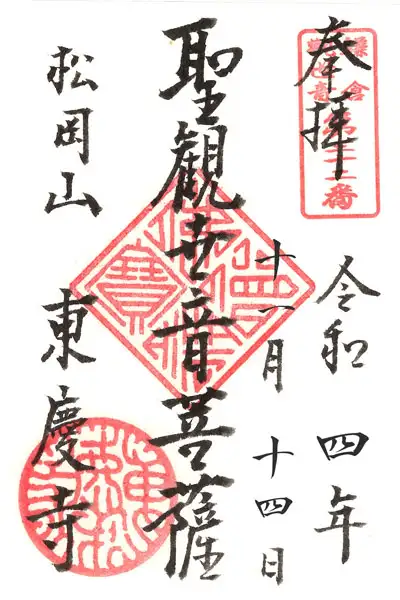 奉拝
鎌倉
観世音
第三十二番
令和四年
十一月十四日
聖観世音菩薩
佛法僧寶
松岡山 東慶寺